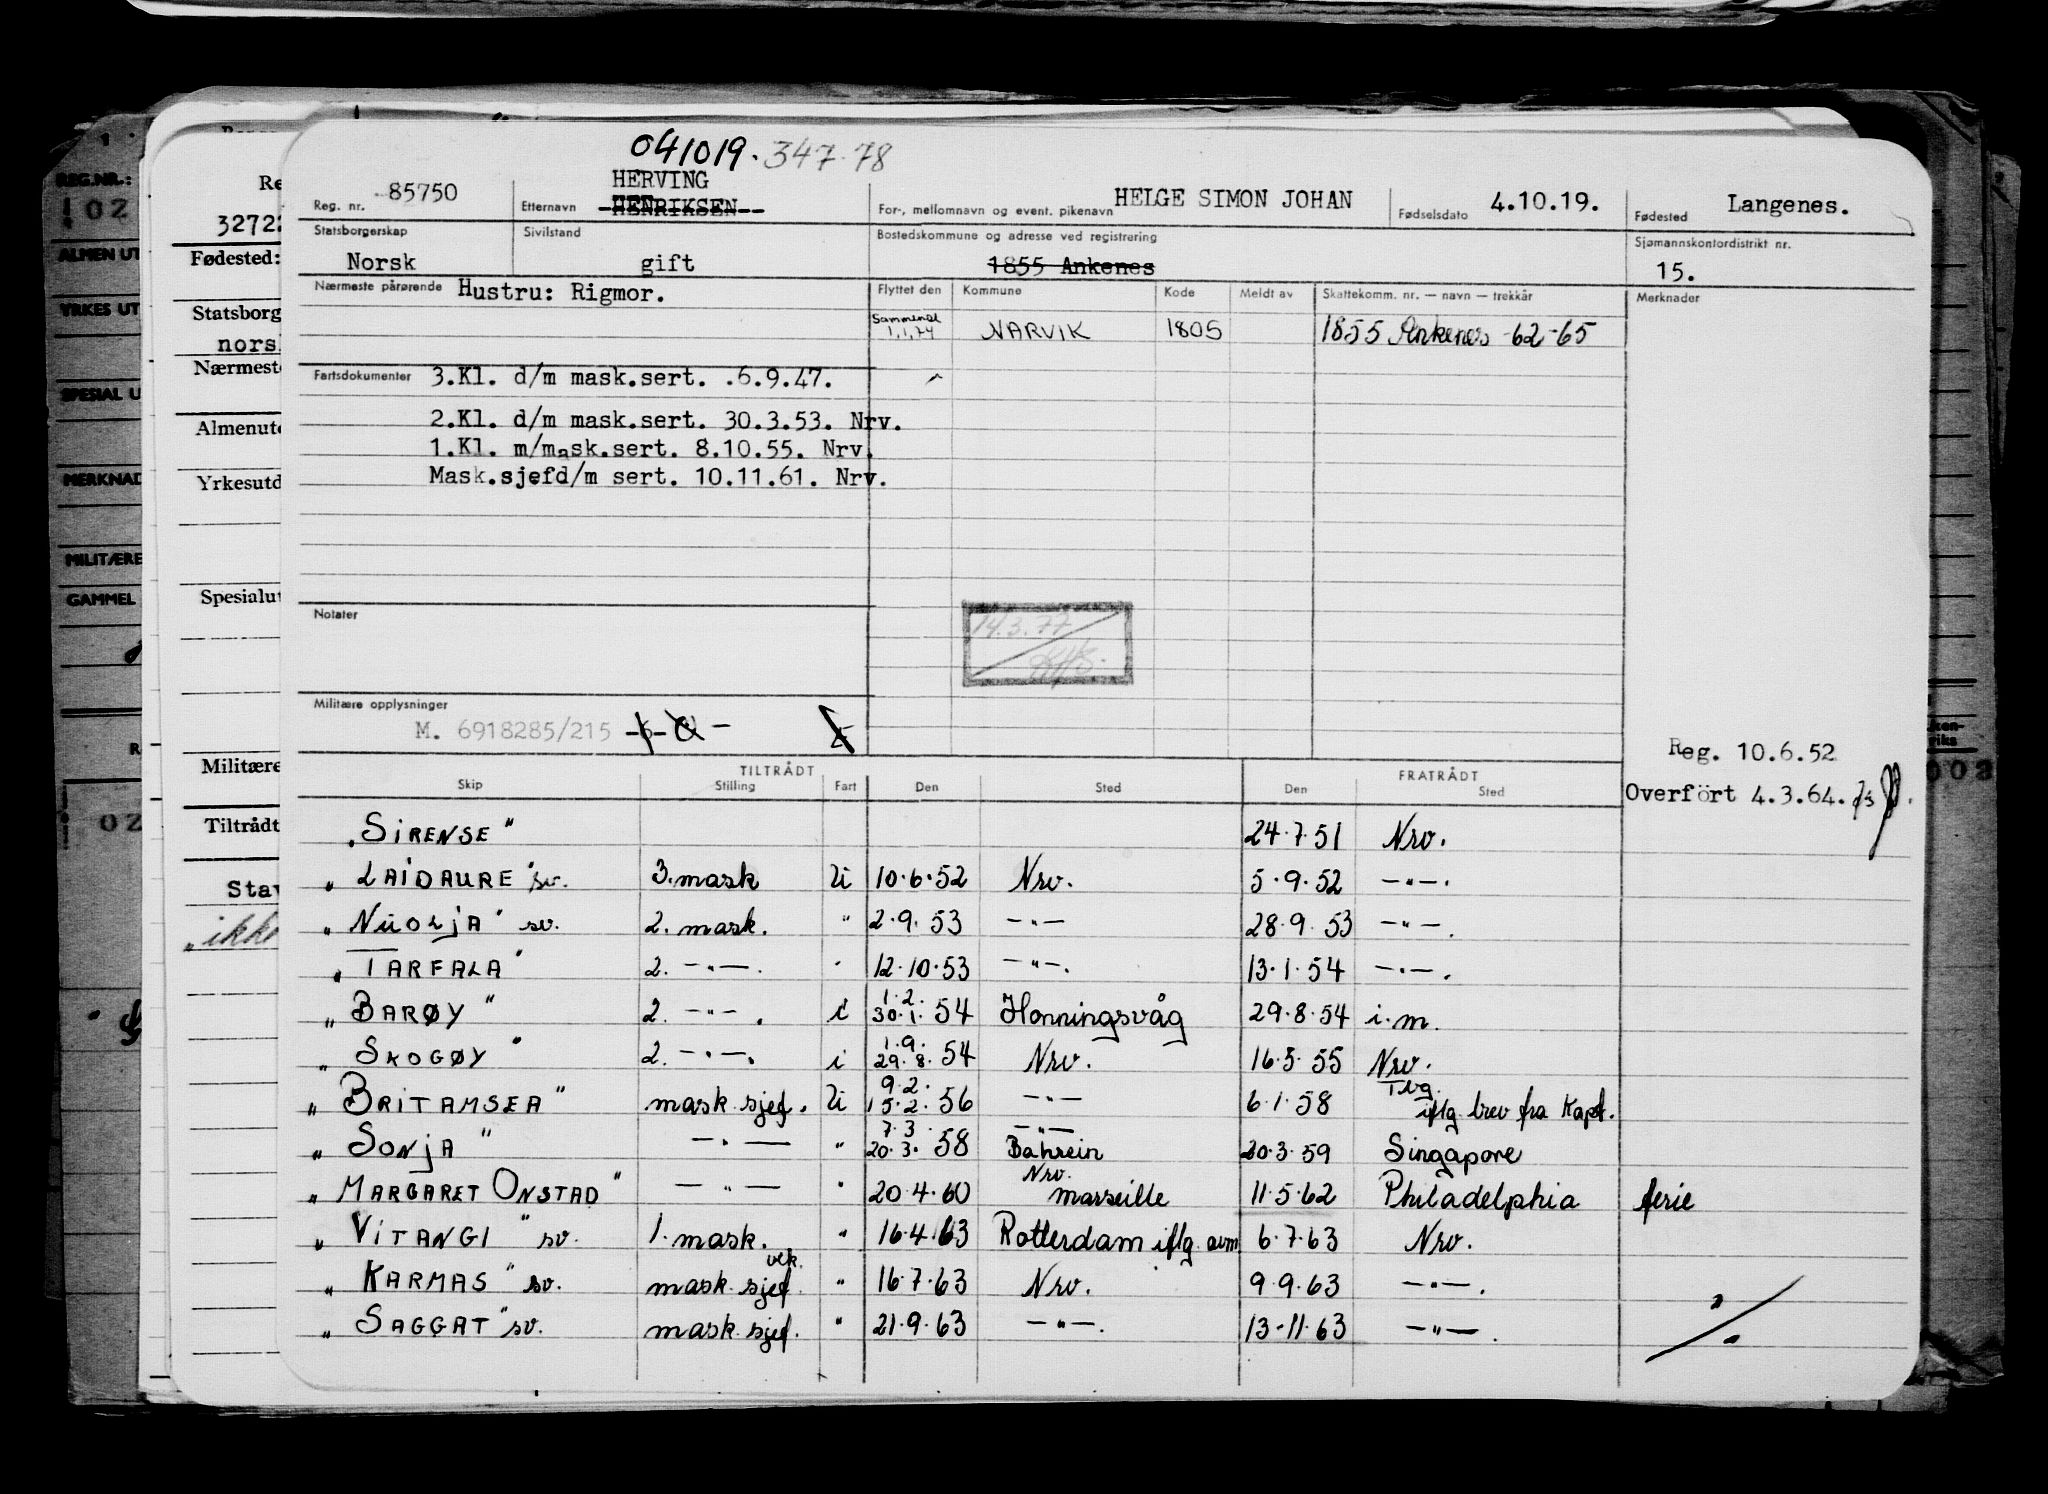 041019.347.78
Reg. nr. 85750 Etternavn HERVING HENRIKSEN For-, mellomnavn og event. pikenavn HELGE SIMON JOHAN Fødselsdato 4.10.19. Fødested Langenes.
Statsborgerskap Norsk Sivilstand gift Bostedskommune og adresse ved registrering 1855 Ankenes Sjømannskontordistrikt nr. 15.
Nærmeste pårørende Hustru: Rigmor. Flyttet den Kommune Kode Meldt av Skattekomm. nr. — navn — trekkår Merknader
Sammensl 1.1.74 NARVIK 1805 1855 Ankenes -62-65
Fartsdokumenter 3.Kl. d/m mask.sert. .6.9.47.
2.Kl. d/m mask.sert. 30.3.53. Nrv.
1.Kl. m/mask.sert. 8.10.55. Nrv.
Mask.sjefd/m sert. 10.11.61. Nrv.
Notater
14.3.77
Militære opplysninger
M. 6918285/215
Reg. 10.6.52
Overført 4.3.64.
TILTRÅDT FRATRÅDT
Skip Stilling Fart Den Sted Den Sted
"SIRENSE" 24.7.51 Nrv.
"LAIDAURE" sv. 3. mask U 10.6.52 Nrv. 5.9.52 —"—.
"NUOLJA" sv. 2. mask. " 2.9.53 —"— 28.9.53 —"—.
"TARFALA" 2. —"—. " 12.10.53 —"—. 13.1.54 —"—.
"BARØY" 2. —"—. i 1.2. 30.1.54 Honningsvåg 29.8.54 i.m.
"SKOGØY" 2. —"—. i 1.9. 29.8.54 Nrv. 16.5.55 Nrv.
"BRITAMSEA" mask. sjef. U 9.2. 15.2.56 —"— 6.1.58 Tbg. iflg. brev fra Kapt.
"SONJA" —"— " 7.3. 20.3.58 —"— Bahrein 20.3.59 Singapore
"MARGARET ONSTAD" —"— " 20.4.60 Nrv. Marseille 11.5.62 Philadelphia ferie
"VITANGI" sv. 1. mask. " 16.4.63 Rotterdam iflg. avm 6.7.63 Nrv.
"KARMAS" sv. mask. sjef vik. " 16.7.63 Nrv. 9.9.63 —"—.
"SAGGAT" sv. mask. sjef. " 21.9.63 —"—. 13.11.63 —"—.
REG.NR.:
102
ALMEN UT
YRKES UT
SPESIAL U
MERKNAD
MILITÆRE
GAMMEL
02
Re
32722
Fødested:
Statsborg
nors
Nærmeste
Almenutd
Yrkesutd
Spesialut
Militære
Tiltrådt
Stav
"ikke
003